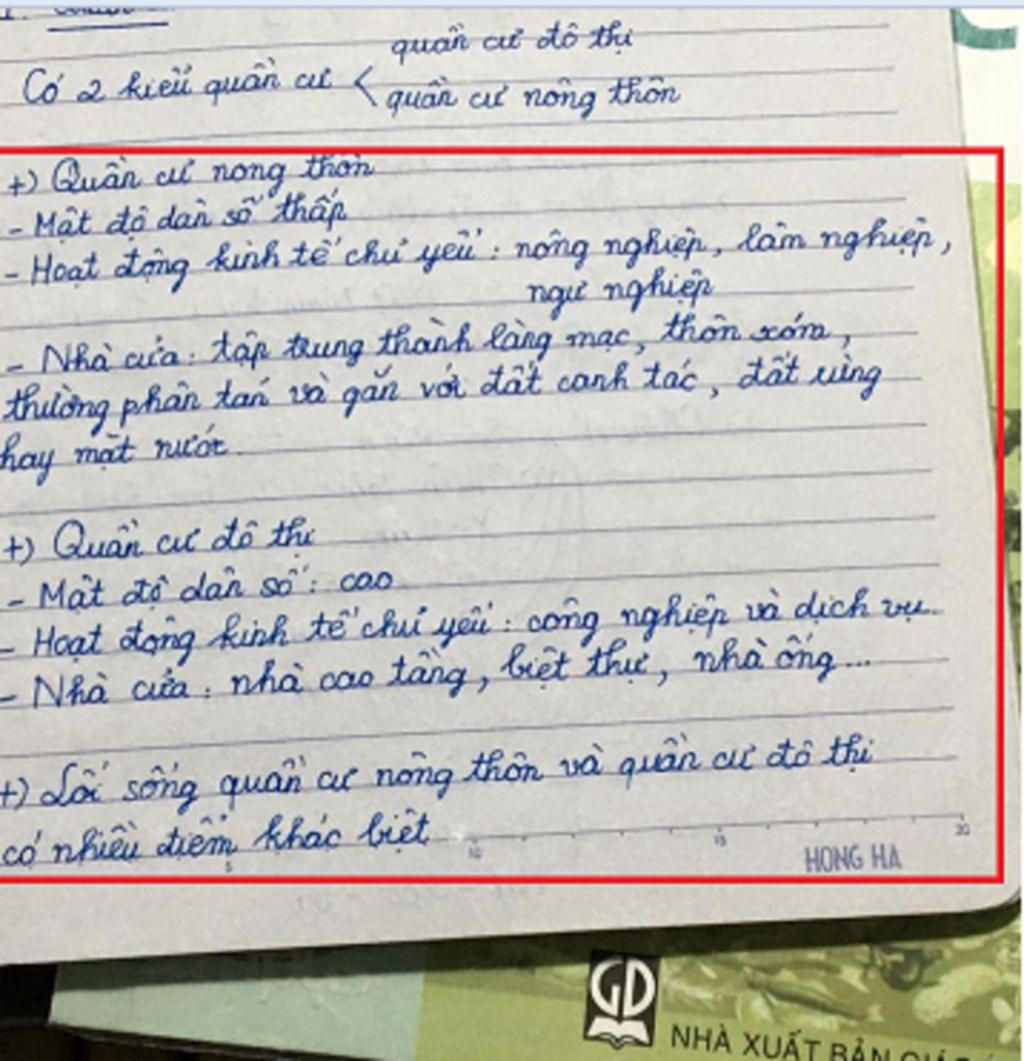 quần cư đô thị
Có 2 kiểu quần cư <
quần cư nông thôn
+) Quần cư nong thôn
- Mật độ dân số thấp
- Hoạt động kinh tế chủ yếu : nông nghiệp, lâm nghiệp,
ngư nghiệp
- Nhà cửa : tập trung thành làng mạc, thôn xóm,
thường phân tán và gắn với đất canh tác, đất rừng
hay mặt nước.
+) Quần cư đô thị
- Mật độ dân số : cao
- Hoạt động kinh tế chủ yếu : công nghiệp và dịch vụ.
- Nhà cửa : nhà cao tầng, biệt thự, nhà ống ...
+) Lối sống quần cư nông thôn và quần cư đô thị
có nhiều điểm khác biệt
5 10 15 20
HONG HA
GD
NHÀ XUẤT BẢN